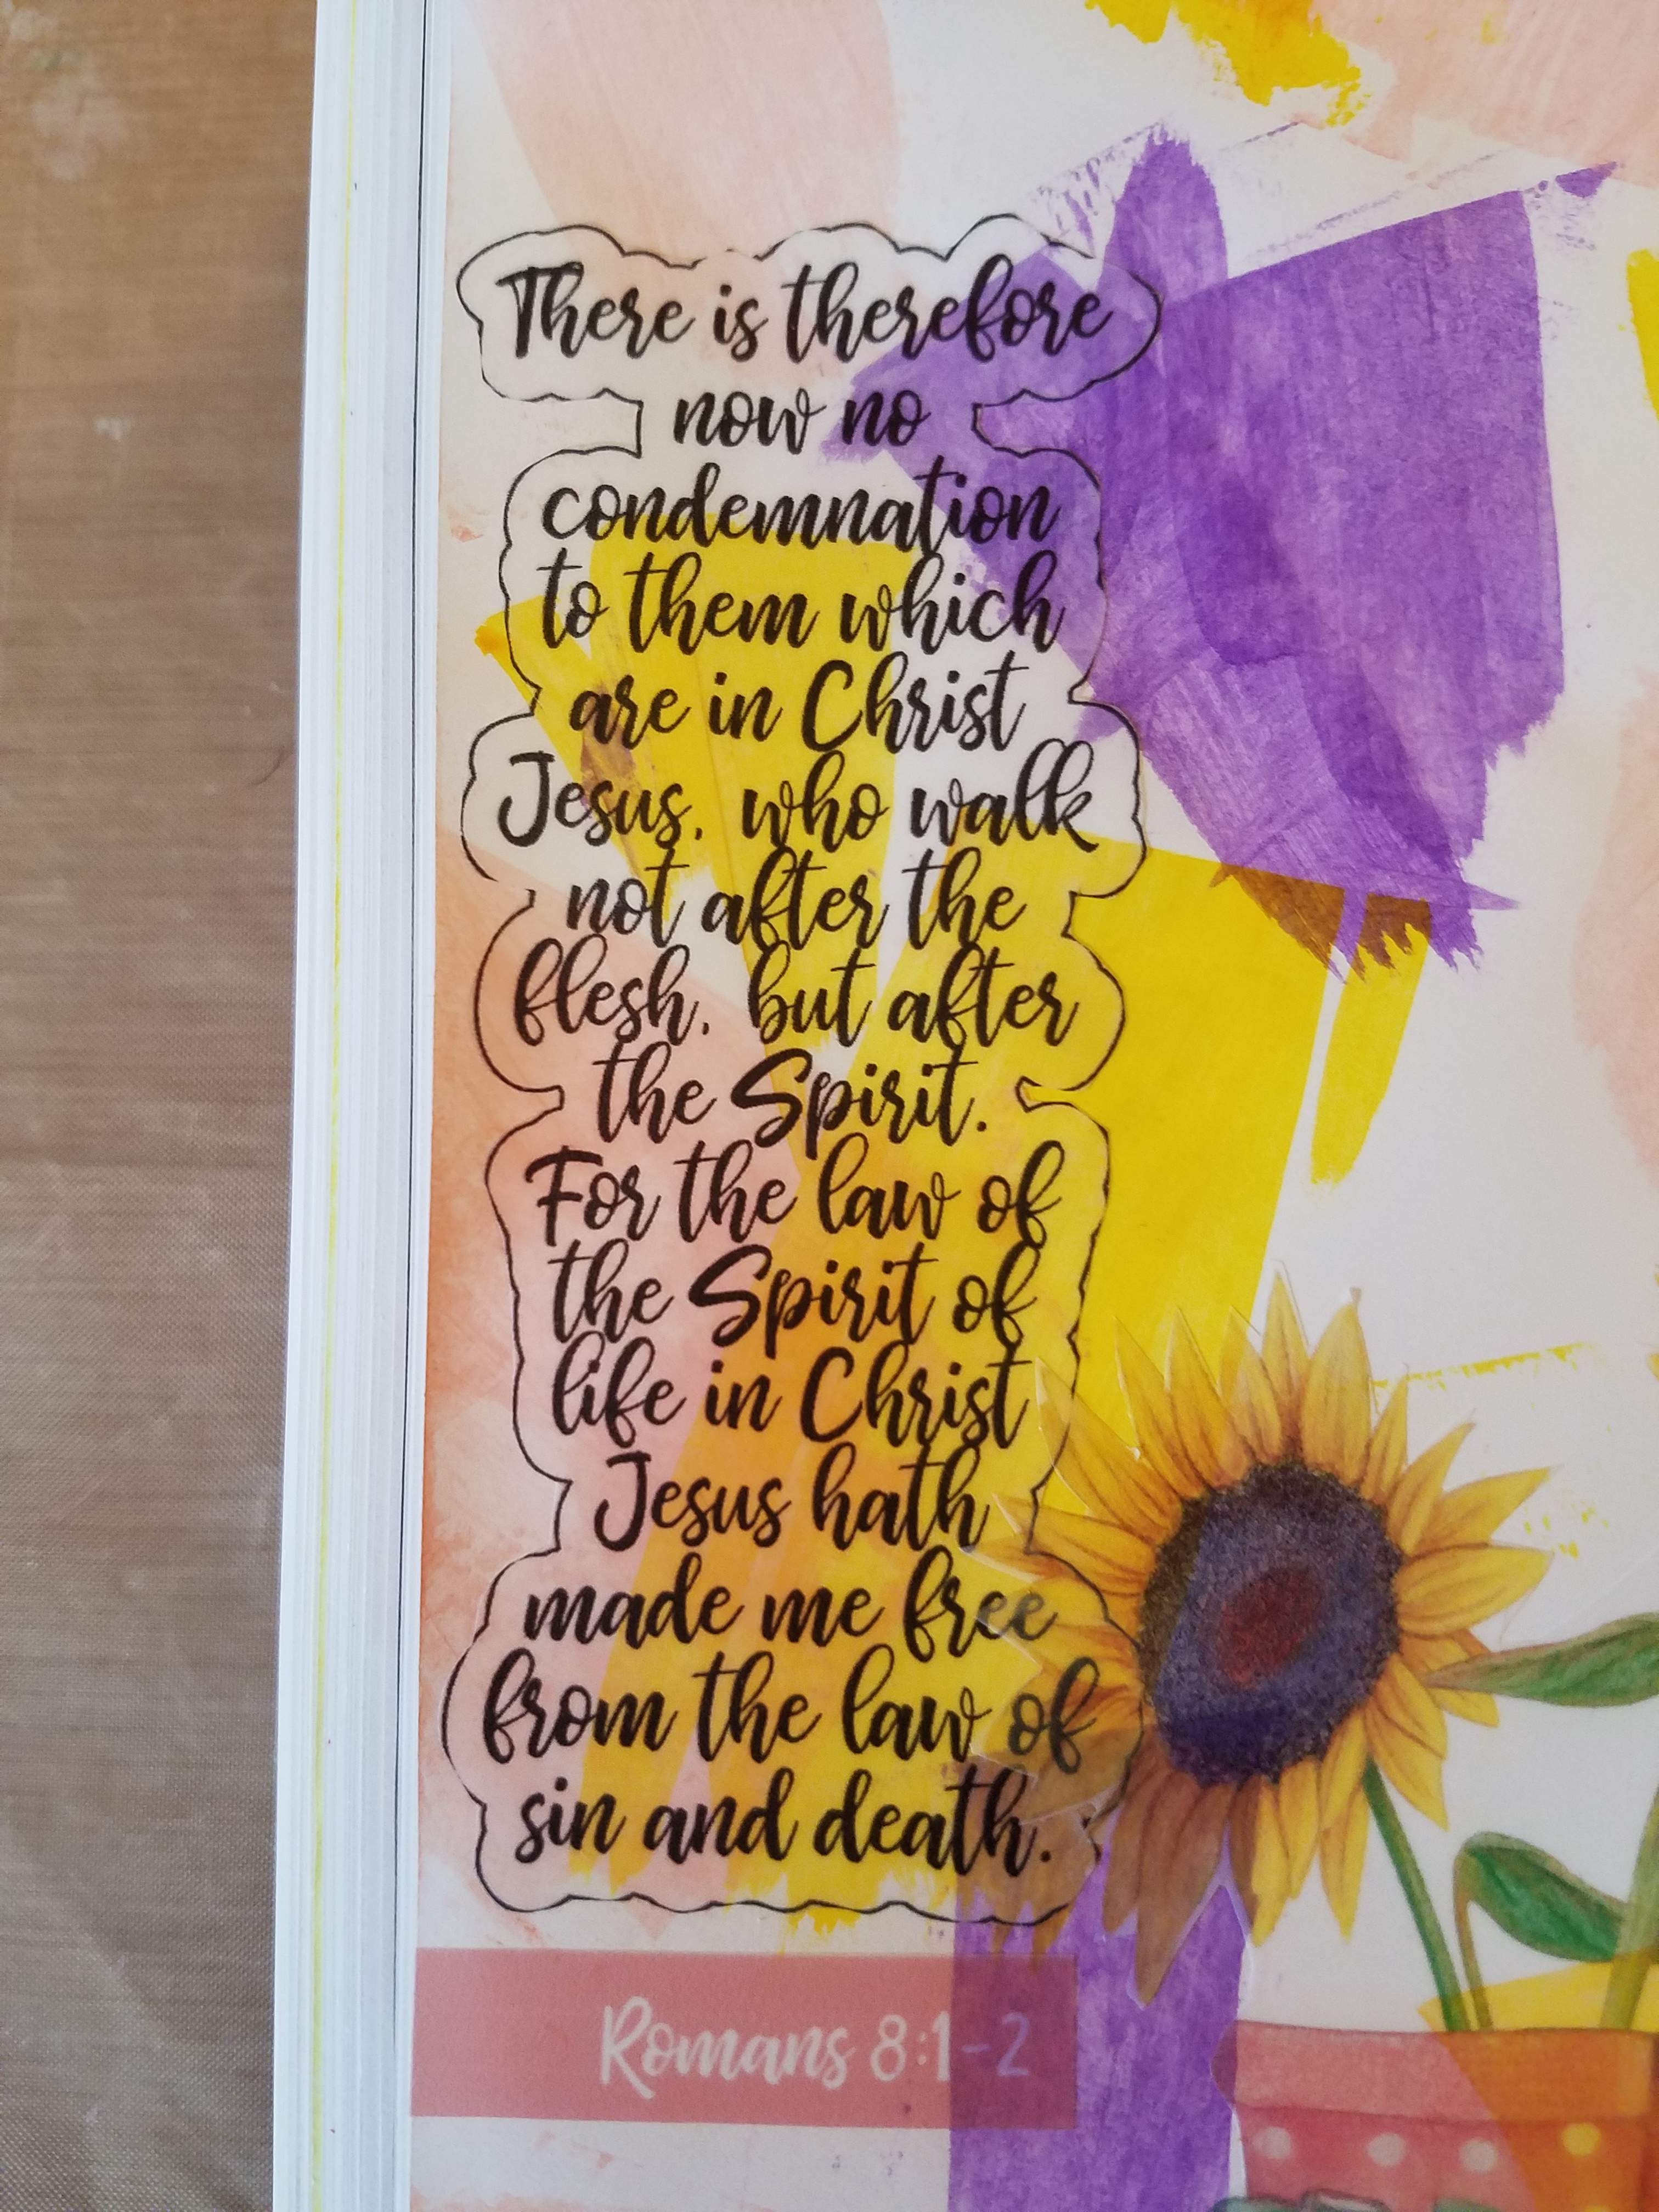 There is therefore
now no
condemnation
to them which
are in Christ
Jesus, who walk
not after the
flesh, but after
the Spirit.
For the law of
the Spirit of
life in Christ
Jesus hath
made me free
from the law of
sin and death.
Romans 8:1-2